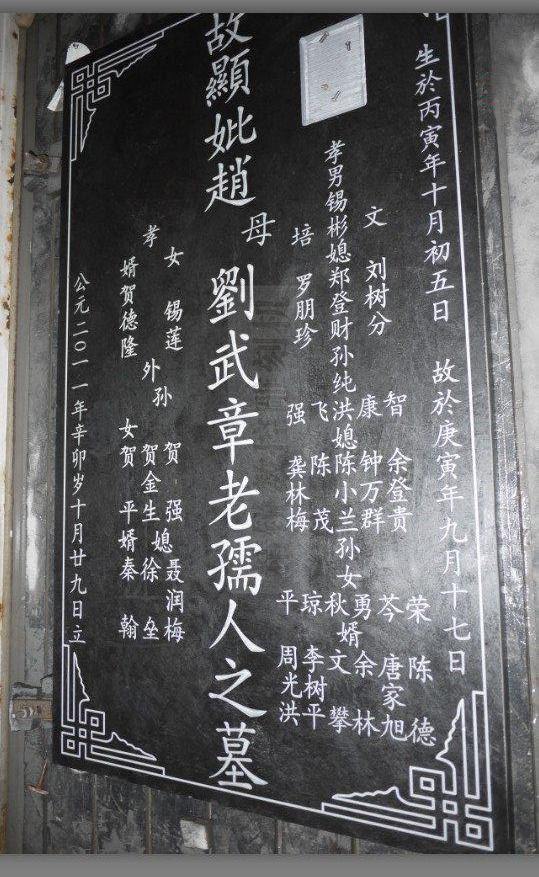 生於丙寅年十月初五日 故於庚寅年九月十七日
文 刘树分
孝男锡彬媳郑登财孙纯洪媳陈小兰孙女秋婿文攀
培 罗朋珍
智 余登贵
康 钟万群
飞 陈茂
强 龚林梅
荣 陈德
芩 唐家旭
勇 余林
琼 李树平
平 周光洪
故顯妣趙母劉武章老孺人之墓
孝女 锡莲
婿贺德隆
外孙 贺强 媳 聂润梅
贺金生 徐垒
女贺平婿秦翰
公元二〇一一年辛卯岁十月廿九日立